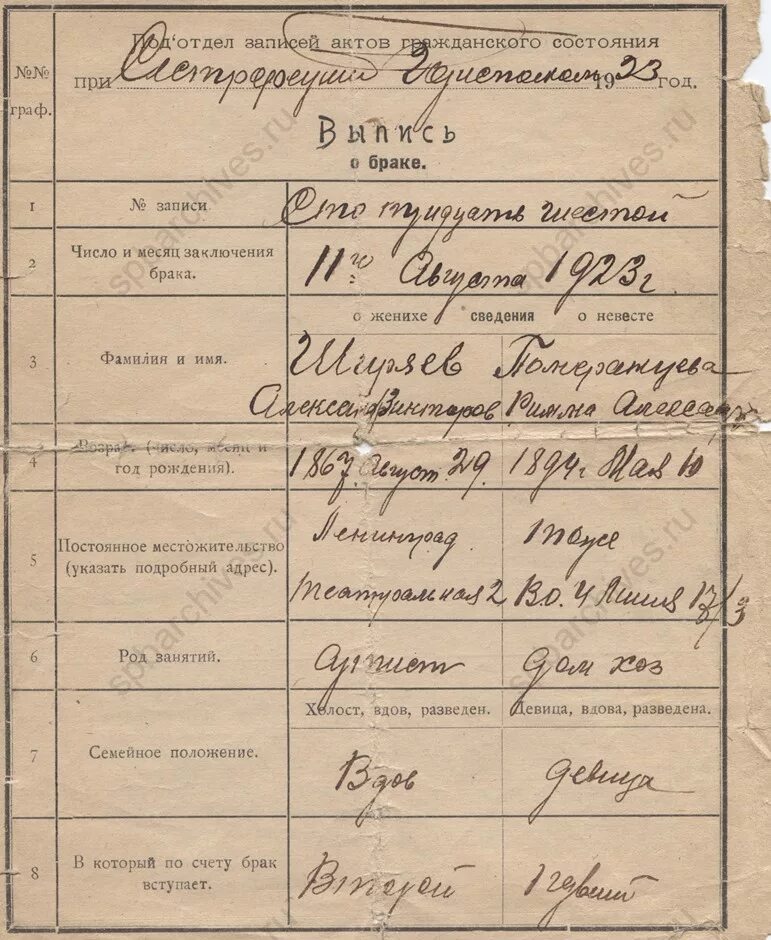 Под'отдел записей актов гражданского состояния
№№ граф.
при Сестрорецком Исполкоме 1923 год.
Выпись
о браке.
1 № записи Сто тридцать шестой
2 Число и месяц заключения брака. 11го Августа 1923 г.
о женихе сведения о невесте
3 Фамилия и имя. Ширяев Померанцева
Александр Викторов Римма Александр
4 Возраст. (число, месяц и год рождения). 1867. Август. 29. 1894 г Мая 10
5 Постоянное местожительство (указать подробный адрес). Ленинград. тоже
Театральная 2 В.О. 4 Линия 17/3
6 Род занятий. артист дом хоз
Холост, вдов, разведен. Девица, вдова, разведена.
7 Семейное положение. Вдов девица
8 В который по счету брак вступает. Второй
spbarchives.ru